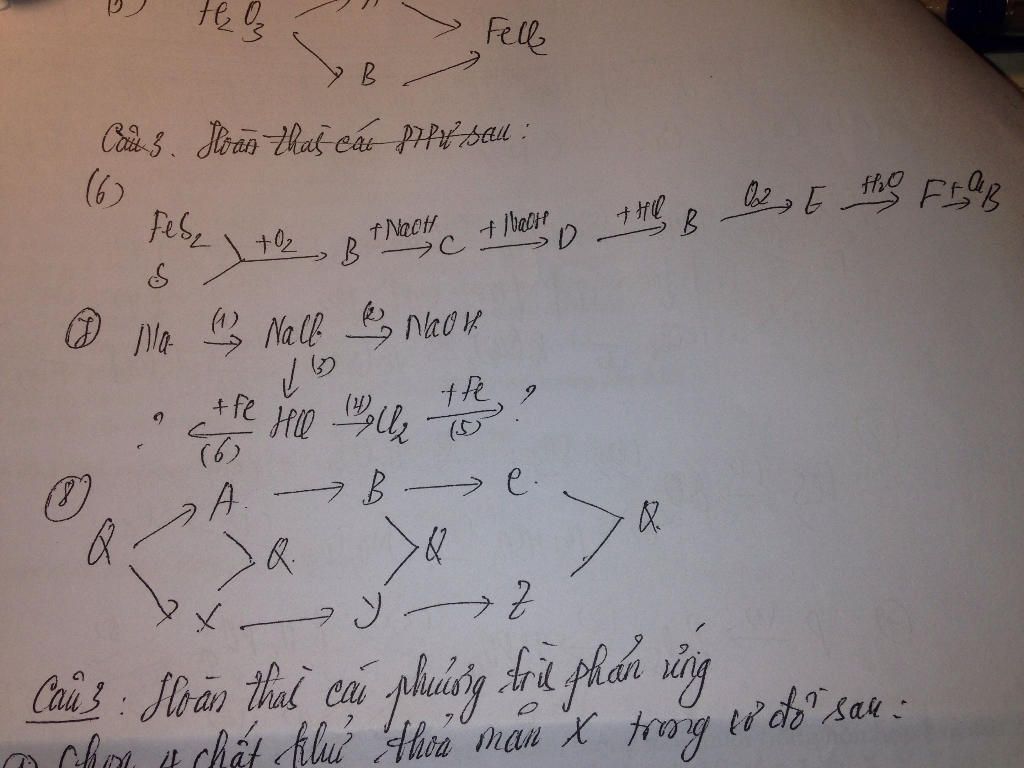 5) Fe2O3 → A → FeCl2
→ B →
Câu 3. Hoàn thàh các PTPƯ sau:
(6)
FeS2
S
+O2 → B +NaOH → C +NaOH → D +HCl → B O2 → E +H2O → F + Cu → B
(7) Na (1) → NaCl (2) → NaOH
↓ (3)
? ← +Fe (6) HCl (4) → Cl2 +Fe → (5) ?
(8) A → B → C
Q Q Q Q
X → Y → Z
Câu 3: Hoàn thàh các phương trìh phản ứng
Chọn 4 chất khử thỏa mãn X trong sơ đồ sau: